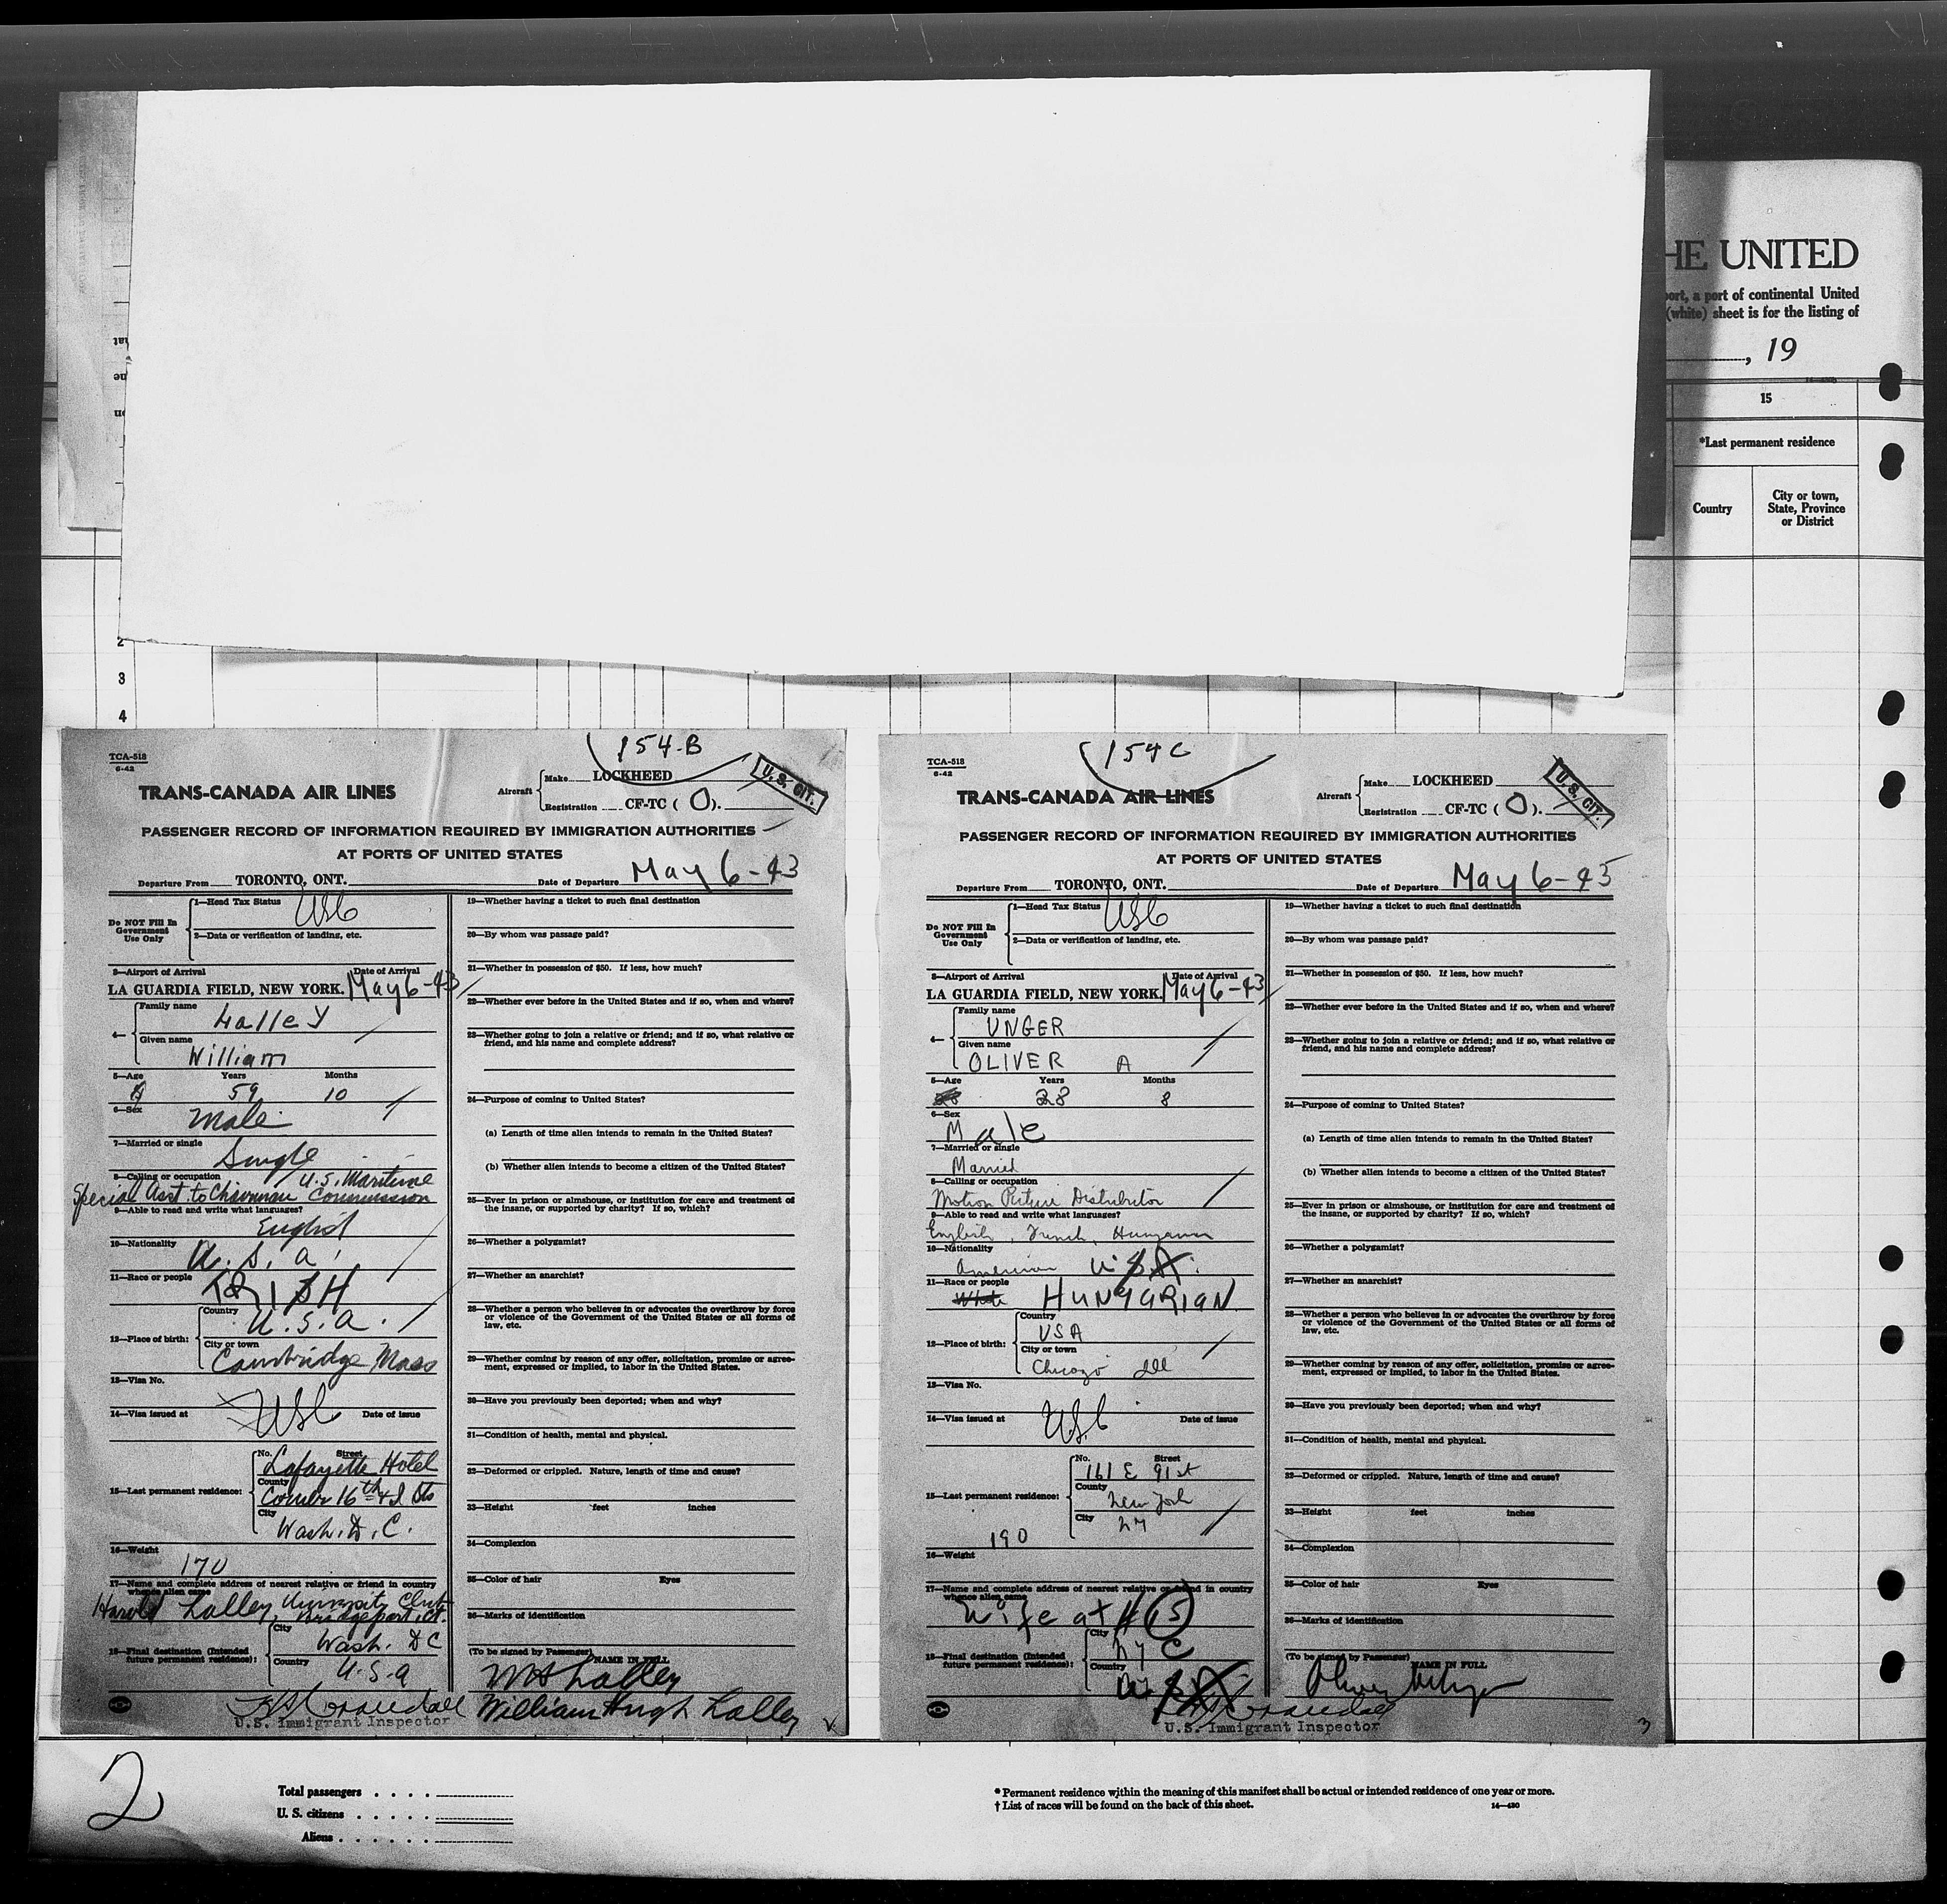 HE UNITED
port, a port of continental United
(white) sheet is for the listing of
, 19
15
*Last permanent residence
Country
City or town,
State, Province
or District
2
3
4
154-B
TCA-518
6-42
TRANS-CANADA AIR LINES
Aircraft
Make LOCKHEED
Registration CF-TC ( O ).
U. S. CIT.
PASSENGER RECORD OF INFORMATION REQUIRED BY IMMIGRATION AUTHORITIES
AT PORTS OF UNITED STATES
Departure From TORONTO, ONT. Date of Departure May 6-43
Do NOT Fill In
Government
Use Only
1—Head Tax Status USC
2—Data or verification of landing, etc.
3—Airport of Arrival Date of Arrival
LA GUARDIA FIELD, NEW YORK. May 6-43
4— Family name
Lalley
Given name
William
5—Age Years Months
59 10
6—Sex
Male
7—Married or single
Single
8—Calling or occupation U.S. Maritime
Special Asst. to Chairman Commission
9—Able to read and write what languages?
English
10—Nationality
U. S. a.
11—Race or people
IRISH
12—Place of birth:
Country
U. S. a.
City or town
Cambridge Mass
13—Visa No.
USC
14—Visa issued at Date of issue
15—Last permanent residence:
No. Street
Lafayette Hotel
County
Corner 16th & I Sts
City
Wash. D. C.
16—Weight
170
17—Name and complete address of nearest relative or friend in country
whence alien came
Harold Lalley, University Club
Bridgeport, Ct.
18—Final destination (Intended
future permanent residence):
City
Wash. DC
Country
U-S-a
U.S. Immigrant Inspector
19—Whether having a ticket to such final destination
20—By whom was passage paid?
21—Whether in possession of $50. If less, how much?
22—Whether ever before in the United States and if so, when and where?
23—Whether going to join a relative or friend; and if so, what relative or
friend, and his name and complete address?
24—Purpose of coming to United States?
(a) Length of time alien intends to remain in the United States?
(b) Whether alien intends to become a citizen of the United States?
25—Ever in prison or almshouse, or institution for care and treatment of
the insane, or supported by charity? If so, which?
26—Whether a polygamist?
27—Whether an anarchist?
28—Whether a person who believes in or advocates the overthrow by force
or violence of the Government of the United States or all forms of
law, etc.
29—Whether coming by reason of any offer, solicitation, promise or agree-
ment, expressed or implied, to labor in the United States.
30—Have you previously been deported; when and why?
31—Condition of health, mental and physical.
32—Deformed or crippled. Nature, length of time and cause?
33—Height feet inches
34—Complexion
35—Color of hair Eyes
36—Marks of identification
(To be signed by Passenger) NAME IN FULL
WH Lalley
William Hugh Lalley
154 C
TCA-518
6-42
TRANS-CANADA AIR LINES
Aircraft
Make LOCKHEED
Registration CF-TC ( O ).
U. S. CIT.
PASSENGER RECORD OF INFORMATION REQUIRED BY IMMIGRATION AUTHORITIES
AT PORTS OF UNITED STATES
Departure From TORONTO, ONT. Date of Departure May 6-43
Do NOT Fill In
Government
Use Only
1—Head Tax Status USC
2—Data or verification of landing, etc.
3—Airport of Arrival Date of Arrival
LA GUARDIA FIELD, NEW YORK. May 6-43
4— Family name
UNGER
Given name
OLIVER A
5—Age Years Months
28 8
6—Sex
Male
7—Married or single
Married
8—Calling or occupation
Motion Picture Distributor
9—Able to read and write what languages?
English, French, Hungarian
10—Nationality
American U.S.A.
11—Race or people
White HUNGARIAN
12—Place of birth:
Country
USA
City or town
Chicago Ill
13—Visa No.
USC
14—Visa issued at Date of issue
15—Last permanent residence:
No. Street
161 E 91 st
County
New York
City
NY
190
16—Weight
17—Name and complete address of nearest relative or friend in country
whence alien came
Wife at #15
18—Final destination (Intended
future permanent residence):
City
NYC
Country
U.S.A
U.S. Immigrant Inspector
19—Whether having a ticket to such final destination
20—By whom was passage paid?
21—Whether in possession of $50. If less, how much?
22—Whether ever before in the United States and if so, when and where?
23—Whether going to join a relative or friend; and if so, what relative or
friend, and his name and complete address?
24—Purpose of coming to United States?
(a) Length of time alien intends to remain in the United States?
(b) Whether alien intends to become a citizen of the United States?
25—Ever in prison or almshouse, or institution for care and treatment of
the insane, or supported by charity? If so, which?
26—Whether a polygamist?
27—Whether an anarchist?
28—Whether a person who believes in or advocates the overthrow by force
or violence of the Government of the United States or all forms of
law, etc.
29—Whether coming by reason of any offer, solicitation, promise or agree-
ment, expressed or implied, to labor in the United States.
30—Have you previously been deported; when and why?
31—Condition of health, mental and physical.
32—Deformed or crippled. Nature, length of time and cause?
33—Height feet inches
34—Complexion
35—Color of hair Eyes
36—Marks of identification
(To be signed by Passenger) NAME IN FULL
3
2
Total passengers
U. S. citizens
Aliens
* Permanent residence within the meaning of this manifest shall be actual or intended residence of one year or more.
† List of races will be found on the back of this sheet.
14—430